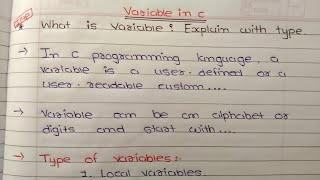 Variable in C
What is Variable? Explain with type.
→ In C programming language, a
variable is a user-defined or a
user-readable custom....
→ Variable can be an alphabet or
digits and start with....
→ Type of variables:-
1. Local variables.